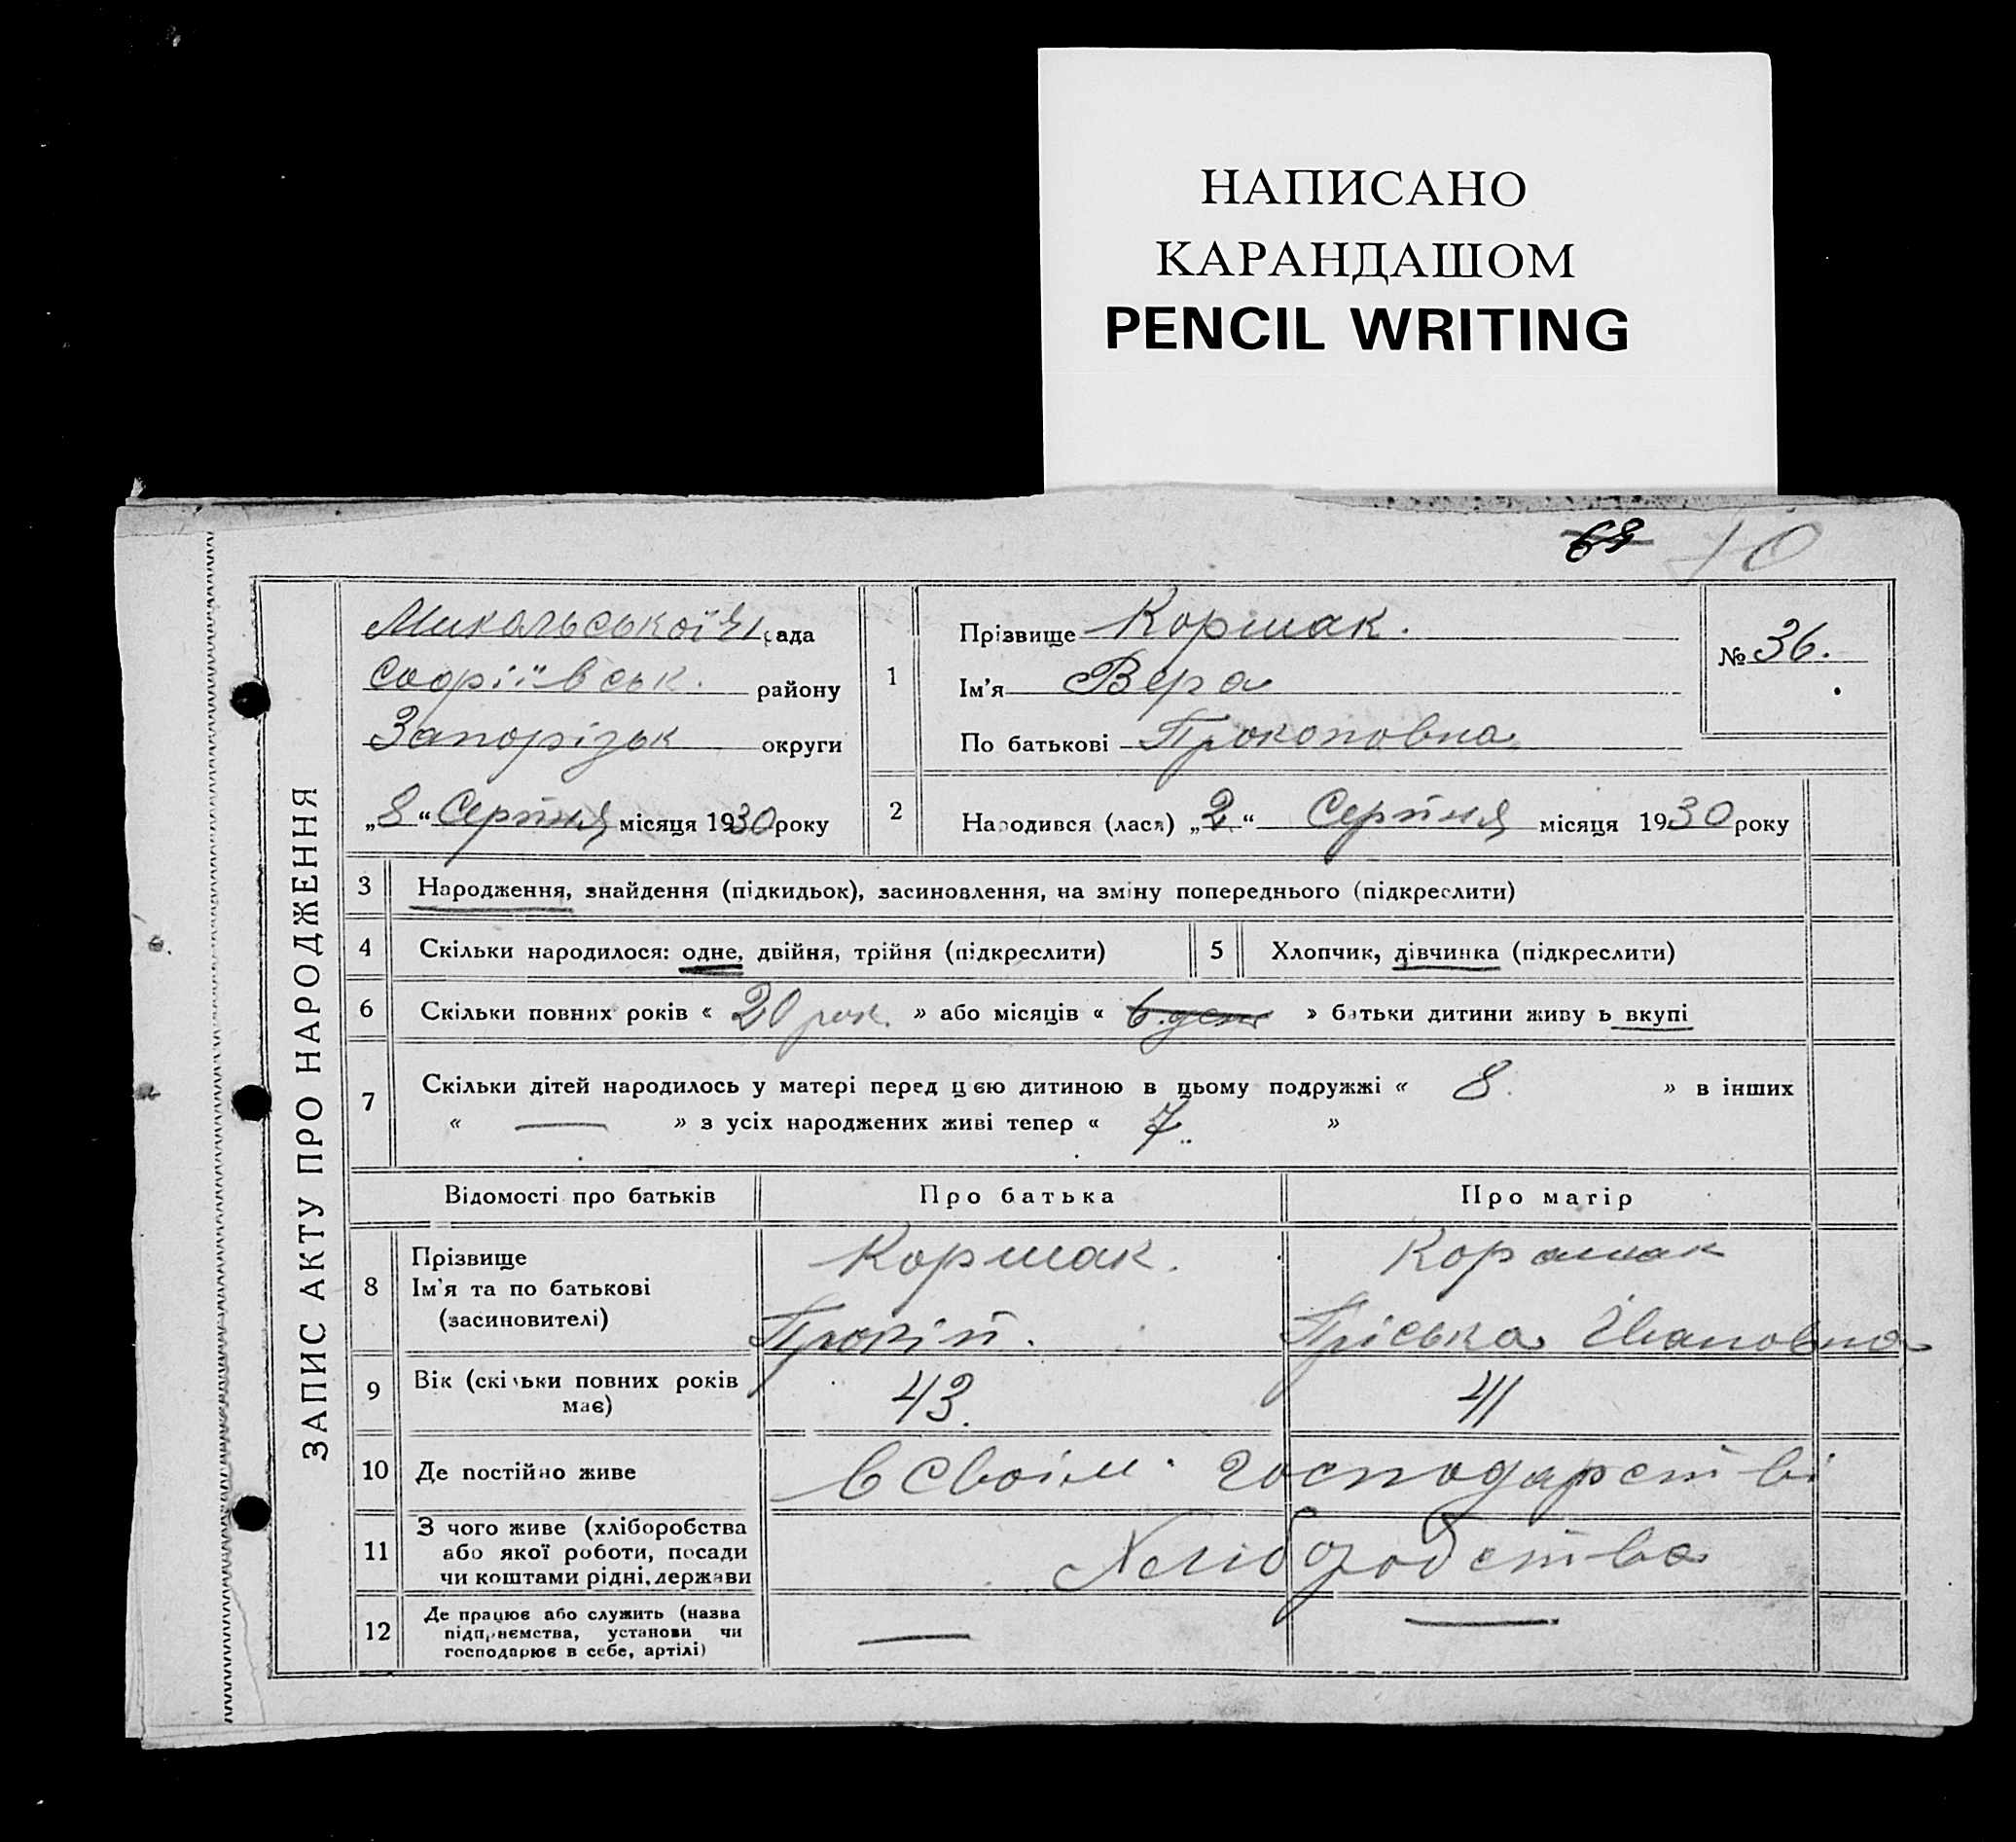 НАПИСАНО
КАРАНДАШОМ
PENCIL WRITING
68 70
ЗАПИС АКТУ ПРО НАРОДЖЕННЯ
Микольської рада
Софіївськ. району
Запорізьк округи
„8“ Серпня місяця 1930 року
1
Прізвище Коршак.
Ім'я Вера
По батькові Прокоповна
№ 36.
2 Народився (лася) „2“ Серпня місяця 1930 року
3 Народження, знайдення (підкидьок), засиновлення, на зміну попереднього (підкреслити)
4 Скільки народилося: одне, двійня, трійня (підкреслити)
5 Хлопчик, дівчинка (підкреслити)
6 Скільки повних років « 20 рок. » або місяців « 6 ден » батьки дитини живу ь вкупі
7 Скільки дітей народилось у матері перед цєю дитиною в цьому подружжі « 8. » в інших
« — » з усіх народжених живі тепер « 7. »
Відомості про батьків Про батька Про матір
8 Прізвище
Ім'я та по батькові
(засиновителі)
Коршак.
Коршак
Пріська Івановна
9 Вік (скільки повних років
має)
43. 41
10 Де постійно живе в своїм господарстві
11 З чого живе (хліборобства
або якої роботи, посади
чи коштами рідні, держави
Хліборобства
12 Де працює або служить (назва
підприємства, установи чи
господарює в себе, артілі)
— —